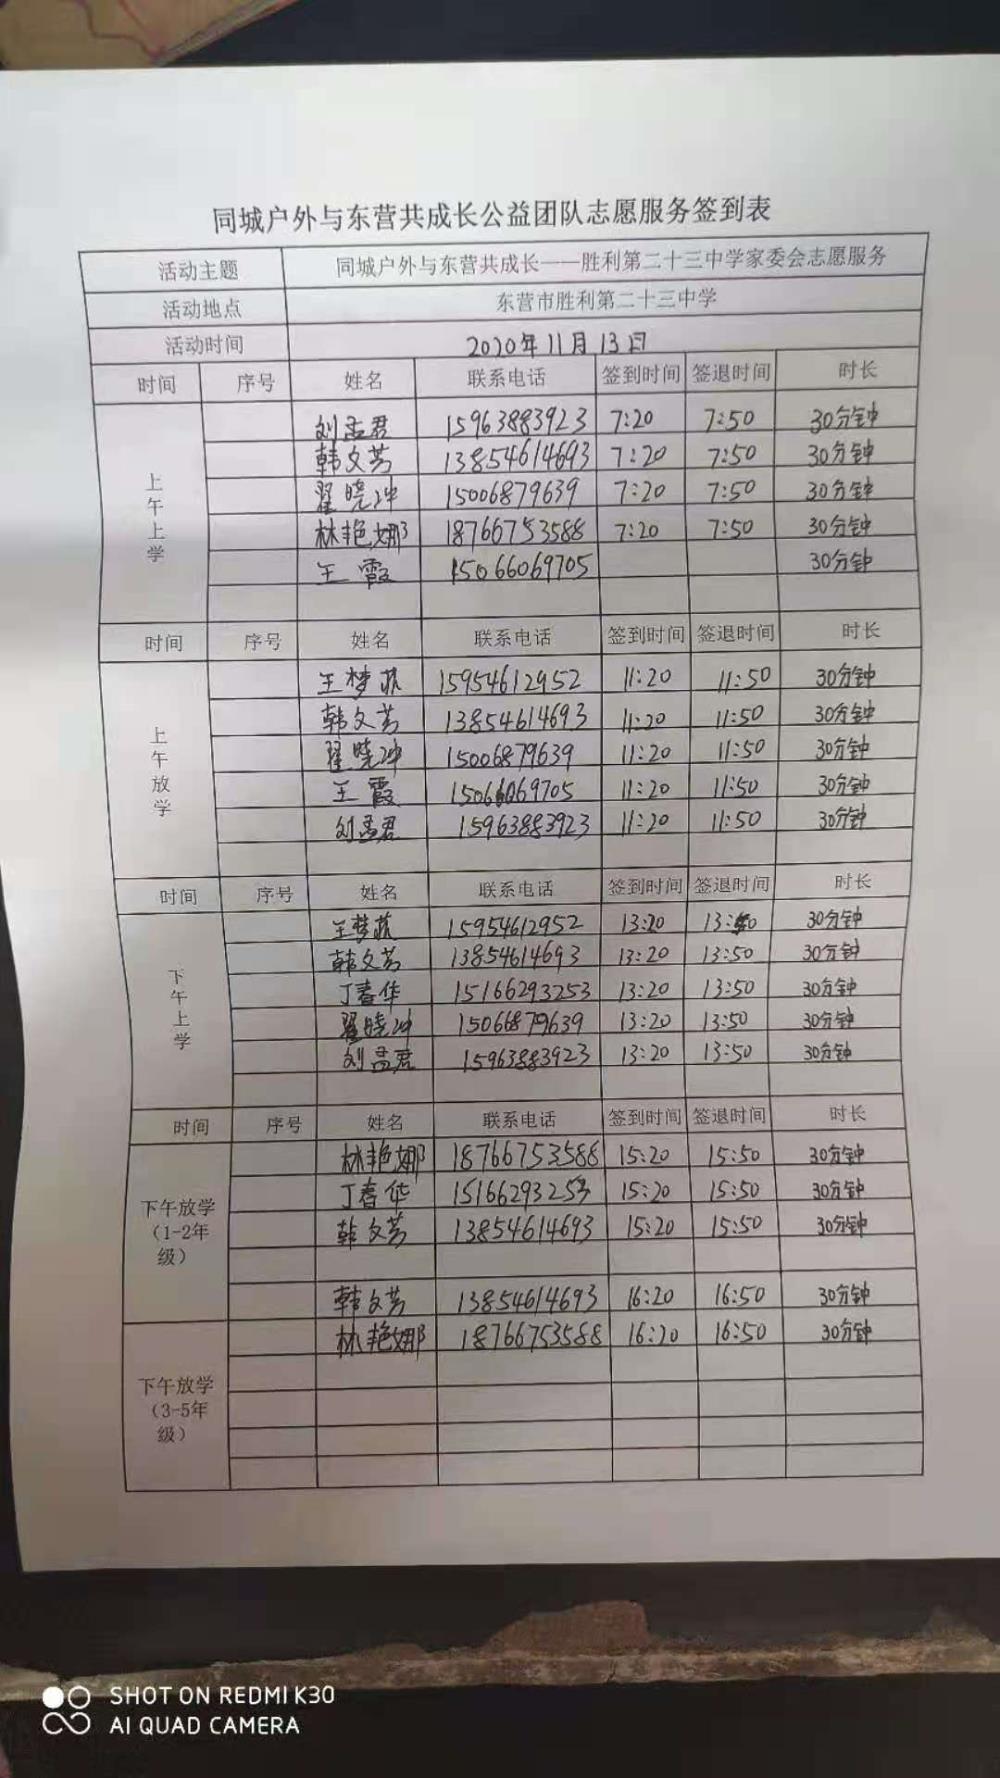 同城户外与东营共成长公益团队志愿服务签到表
活动主题 同城户外与东营共成长——胜利第二十三中学家委会志愿服务
活动地点 东营市胜利第二十三中学
活动时间 2020年11月13日
时间 序号 姓名 联系电话 签到时间 签退时间 时长
上午上学
刘孟君 15963883923 7:20 7:50 30分钟
韩文芳 13854614693 7:20 7:50 30分钟
翟晓冲 15006879639 7:20 7:50 30分钟
林艳娜 18766753588 7:20 7:50 30分钟
王霞 15066069705 30分钟
时间 序号 姓名 联系电话 签到时间 签退时间 时长
上午放学
王梦菲 15954612952 11:20 11:50 30分钟
韩文芳 13854614693 11:20 11:50 30分钟
翟晓冲 15006879639 11:20 11:50 30分钟
王霞 15066069705 11:20 11:50 30分钟
刘孟君 15963883923 11:20 11:50 30分钟
时间 序号 姓名 联系电话 签到时间 签退时间 时长
下午上学
王梦菲 15954612952 13:20 13:50 30分钟
韩文芳 13854614693 13:20 13:50 30分钟
丁春华 15166293253 13:20 13:50 30分钟
翟晓冲 15066879639 13:20 13:50 30分钟
刘孟君 15963883923 13:20 13:50 30分钟
时间 序号 姓名 联系电话 签到时间 签退时间 时长
下午放学（1-2年级）
林艳娜 18766753588 15:20 15:50 30分钟
丁春华 15166293253 15:20 15:50 30分钟
韩文芳 13854614693 15:20 15:50 30分钟
韩文芳 13854614693 16:20 16:50 30分钟
下午放学（3-5年级）
林艳娜 18766753588 16:20 16:50 30分钟
SHOT ON REDMI K30
AI QUAD CAMERA